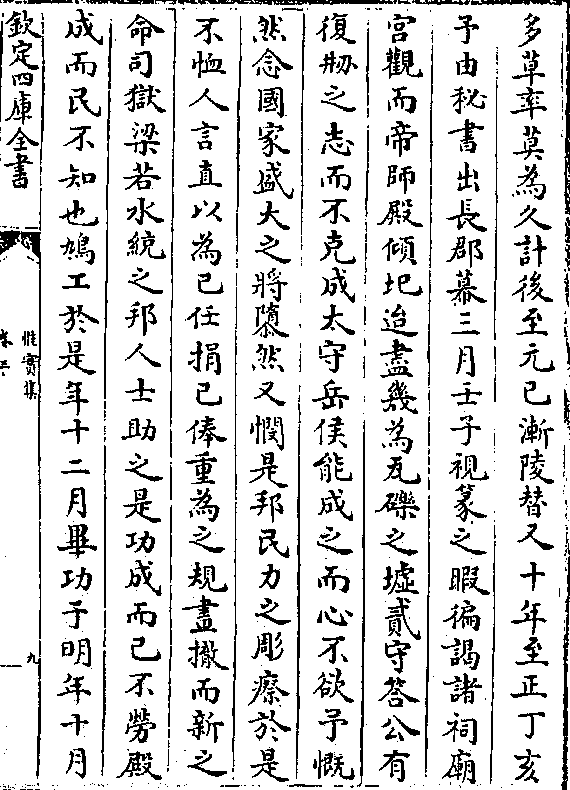 多草率莫為久計後至元已漸陵替又十年至正丁亥
予由秘書出長郡幕三月壬子視篆之暇徧謁諸祠廟
宮觀而帝師殿傾圮迨盡幾為瓦礫之墟貳守荅公有
復剏之志而不克成太守岳侯能成之而心不欲予慨
然念國家盛大之將隳然又憫是邦民力之彫瘵於是
不恤人言直以為己任捐己俸重為之規畫撤而新之
命司獄梁若水統之邦人士助之是功成而己不勞殿
成而民不知也鳩工於是年十二月畢功于明年十月
欽定四庫全書
惟實集
九